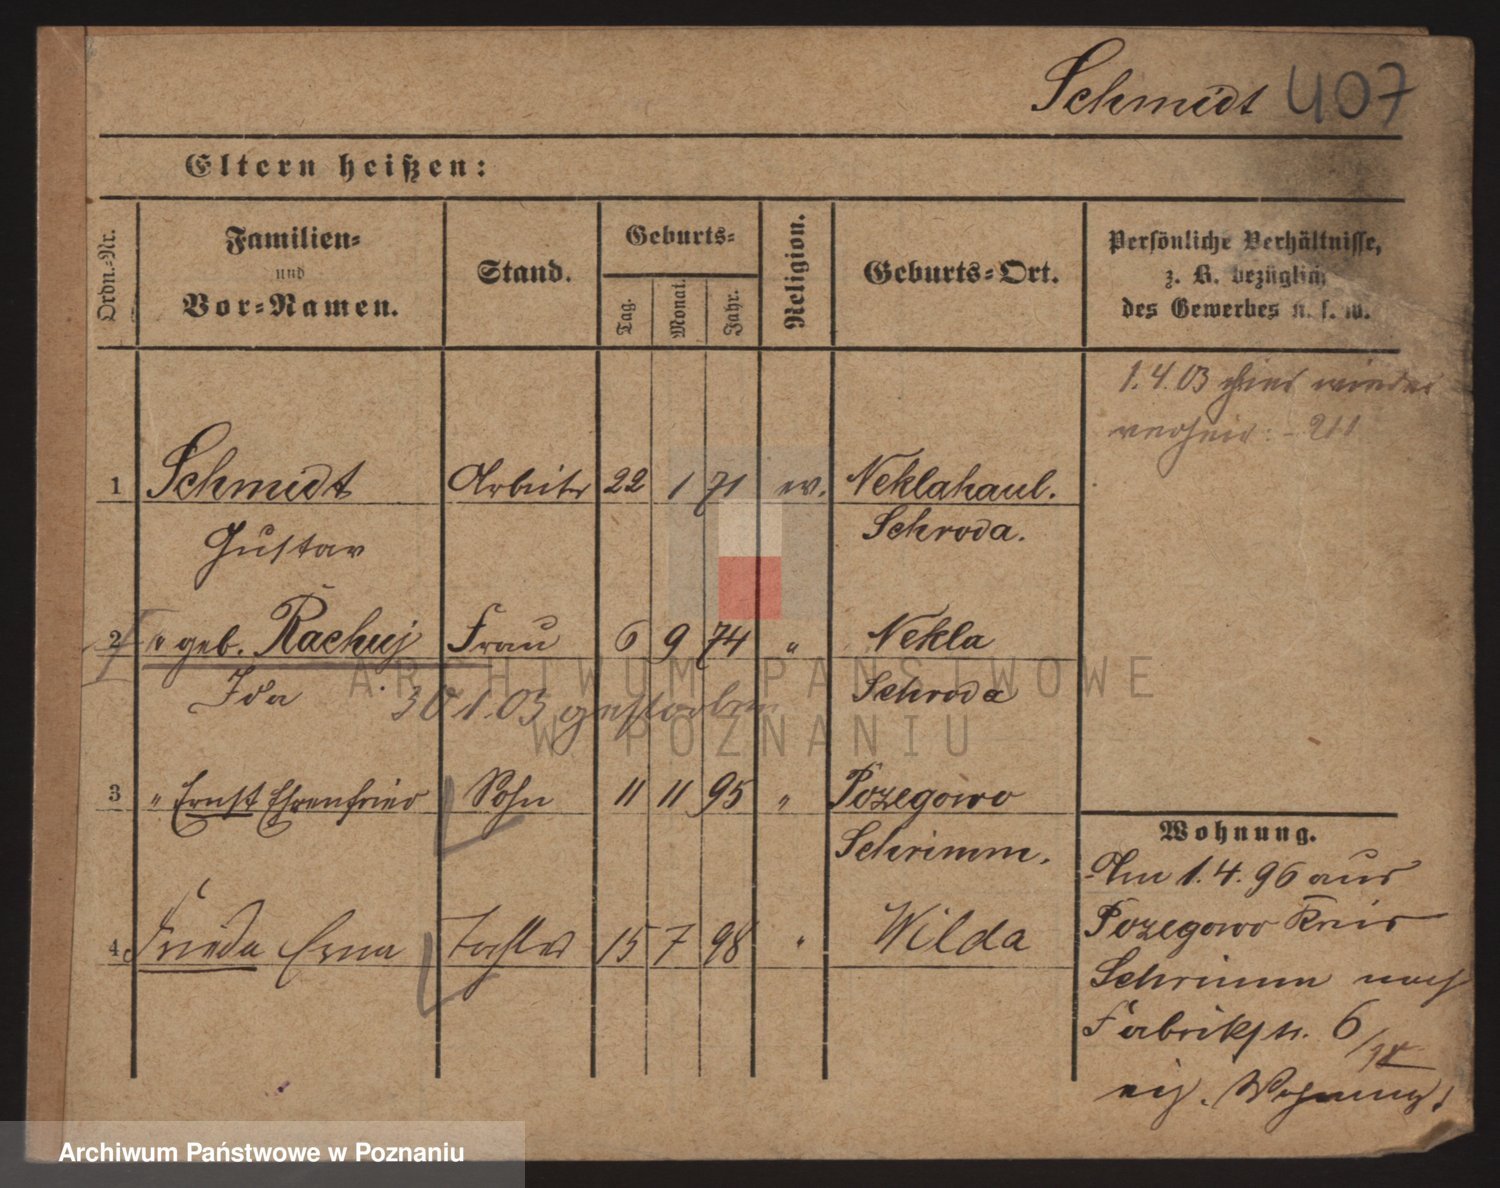 Schmidt 407
Eltern heißen:
Ordn.-Nr.
Familien-
und
Vor-Namen.
Stand.
Geburts-
Tag.
Monat.
Jahr.
Religion.
Geburts-Ort.
Persönliche Verhältnisse,
z. B. bezüglich
des Gewerbes u. s. w.
1.4.03 wieder
verheir. - 211
1 Schmidt Arbeiter 22 1 71 ev. Neklahaul.
Gustav Schroda.
2 " geb. Rachuj Frau 6 9 74 " Nekla
Ida 30 1.03 gestorben Schroda
3 " Ernst Ehrenfried Sohn 11 11 95 " Pozegowo
Schrimm.
4. Frieda Erna Tochter 15 7 98 " Wilda
Wohnung.
Am 1.4.96 aus
Pozegowo Kreis
Schrimm nach
Fabrikstr. 6
eig. Wohnung.
ARCHIWUM PAŃSTWOWE
W POZNANIU
Archiwum Państwowe w Poznaniu